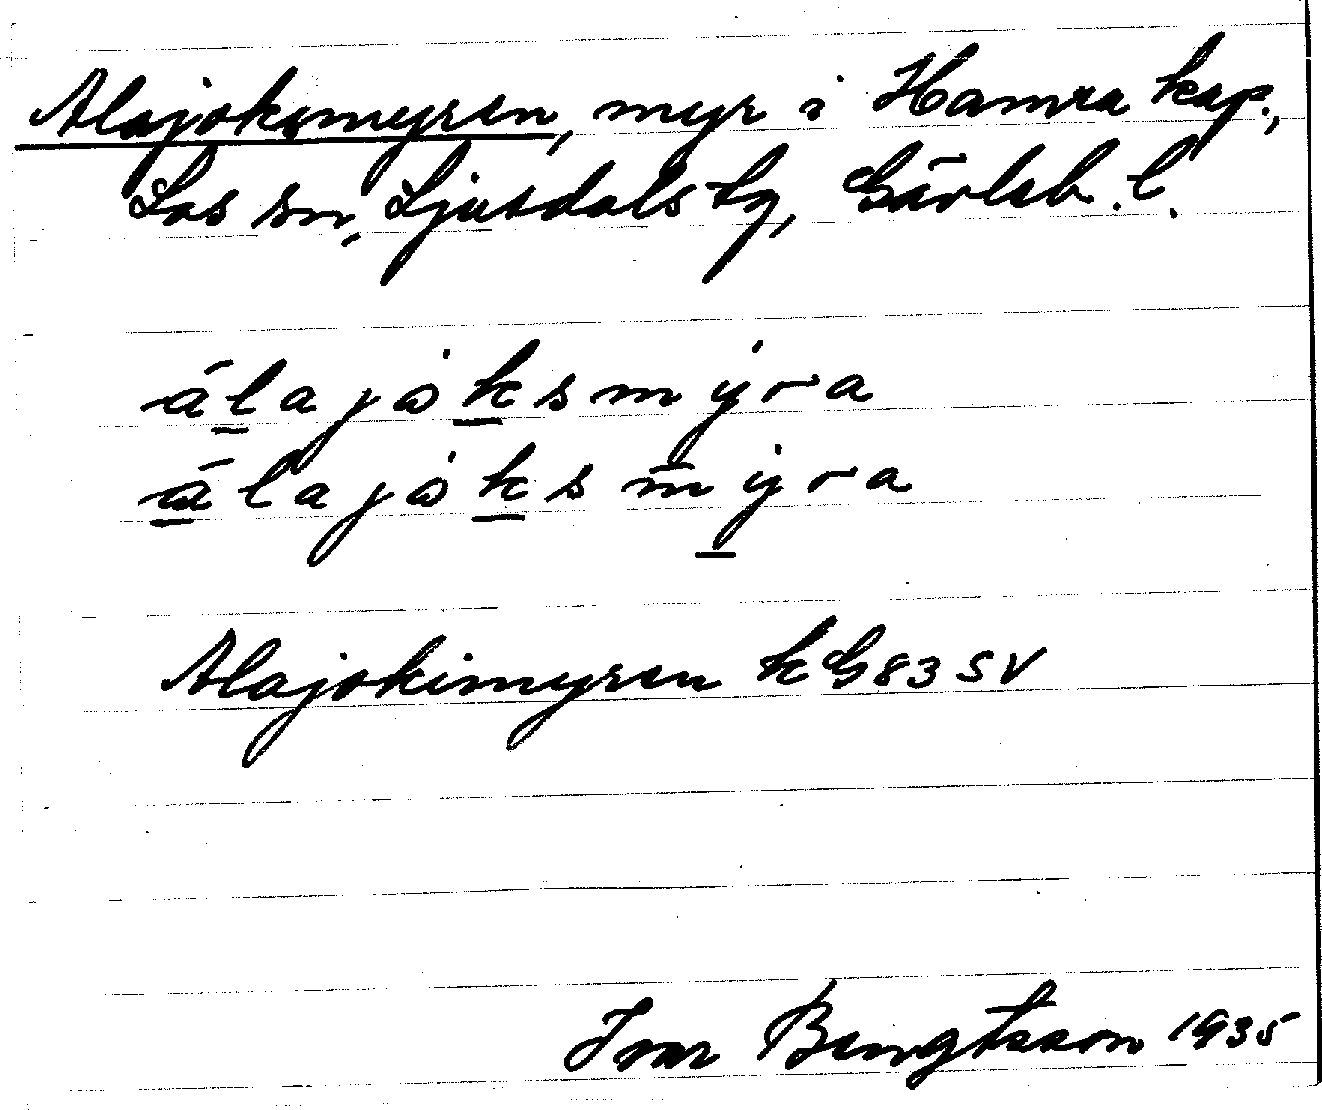 Alajoksmyren, myr i Hamra kap.,
Los sn, Ljusdals tg, Gävleb. l.
álajòksmỳra
álajòksm̄ỳra
Alajokimyren kG83SV
Ivar Bengtsson 1935